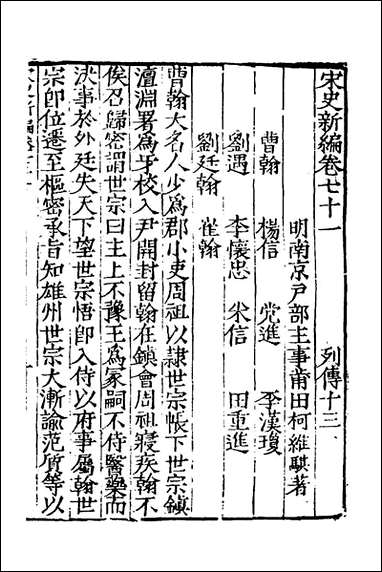 宋史新編卷七十一
明南京戶部主事莆田柯維騏著
列傳十三
曹翰 楊信 党進 李漢瓊
劉遇 李懷忠 米信 田重進
劉廷翰 崔翰
曹翰大名人少爲郡小吏周祖以隸世宗帳下世宗鎮
澶淵署爲牙校入尹開封留翰在鎮會周祖寢疾翰不
俟召歸密謂世宗曰主上不豫王爲冢嗣不侍醫藥而
決事於外廷失天下望世宗悟即入侍以府事屬翰世
宗即位遷至樞密承旨知雄州世宗大漸諭范質等以